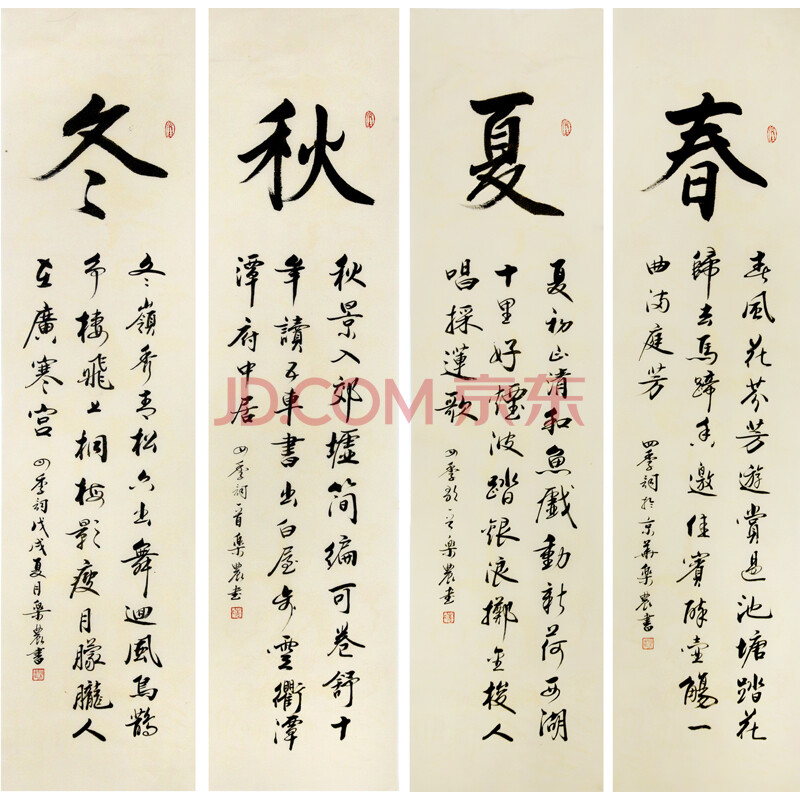 春
春風花芬芳遊賞過池塘踏花
歸去馬蹄香邀佳賓醉壺觴一
曲满庭芳
四季詞於京華樂農書
夏
夏初山清和魚戲動新荷西湖
十里好煙波踏銀浪擲金梭人
唱採蓮歌
四季歌一首樂農書
秋
秋景入郊墟简編可卷舒十
年讀五車書出白屋步雲衢潭
潭府中居
四季詞一首樂農書
冬
冬嶺秀青松六出舞迴風烏鵲
爭棲飛上桐梅影瘦月朦朧人
在廣寒宮
四季詞戊戌夏月樂農書
JD.COM 京东